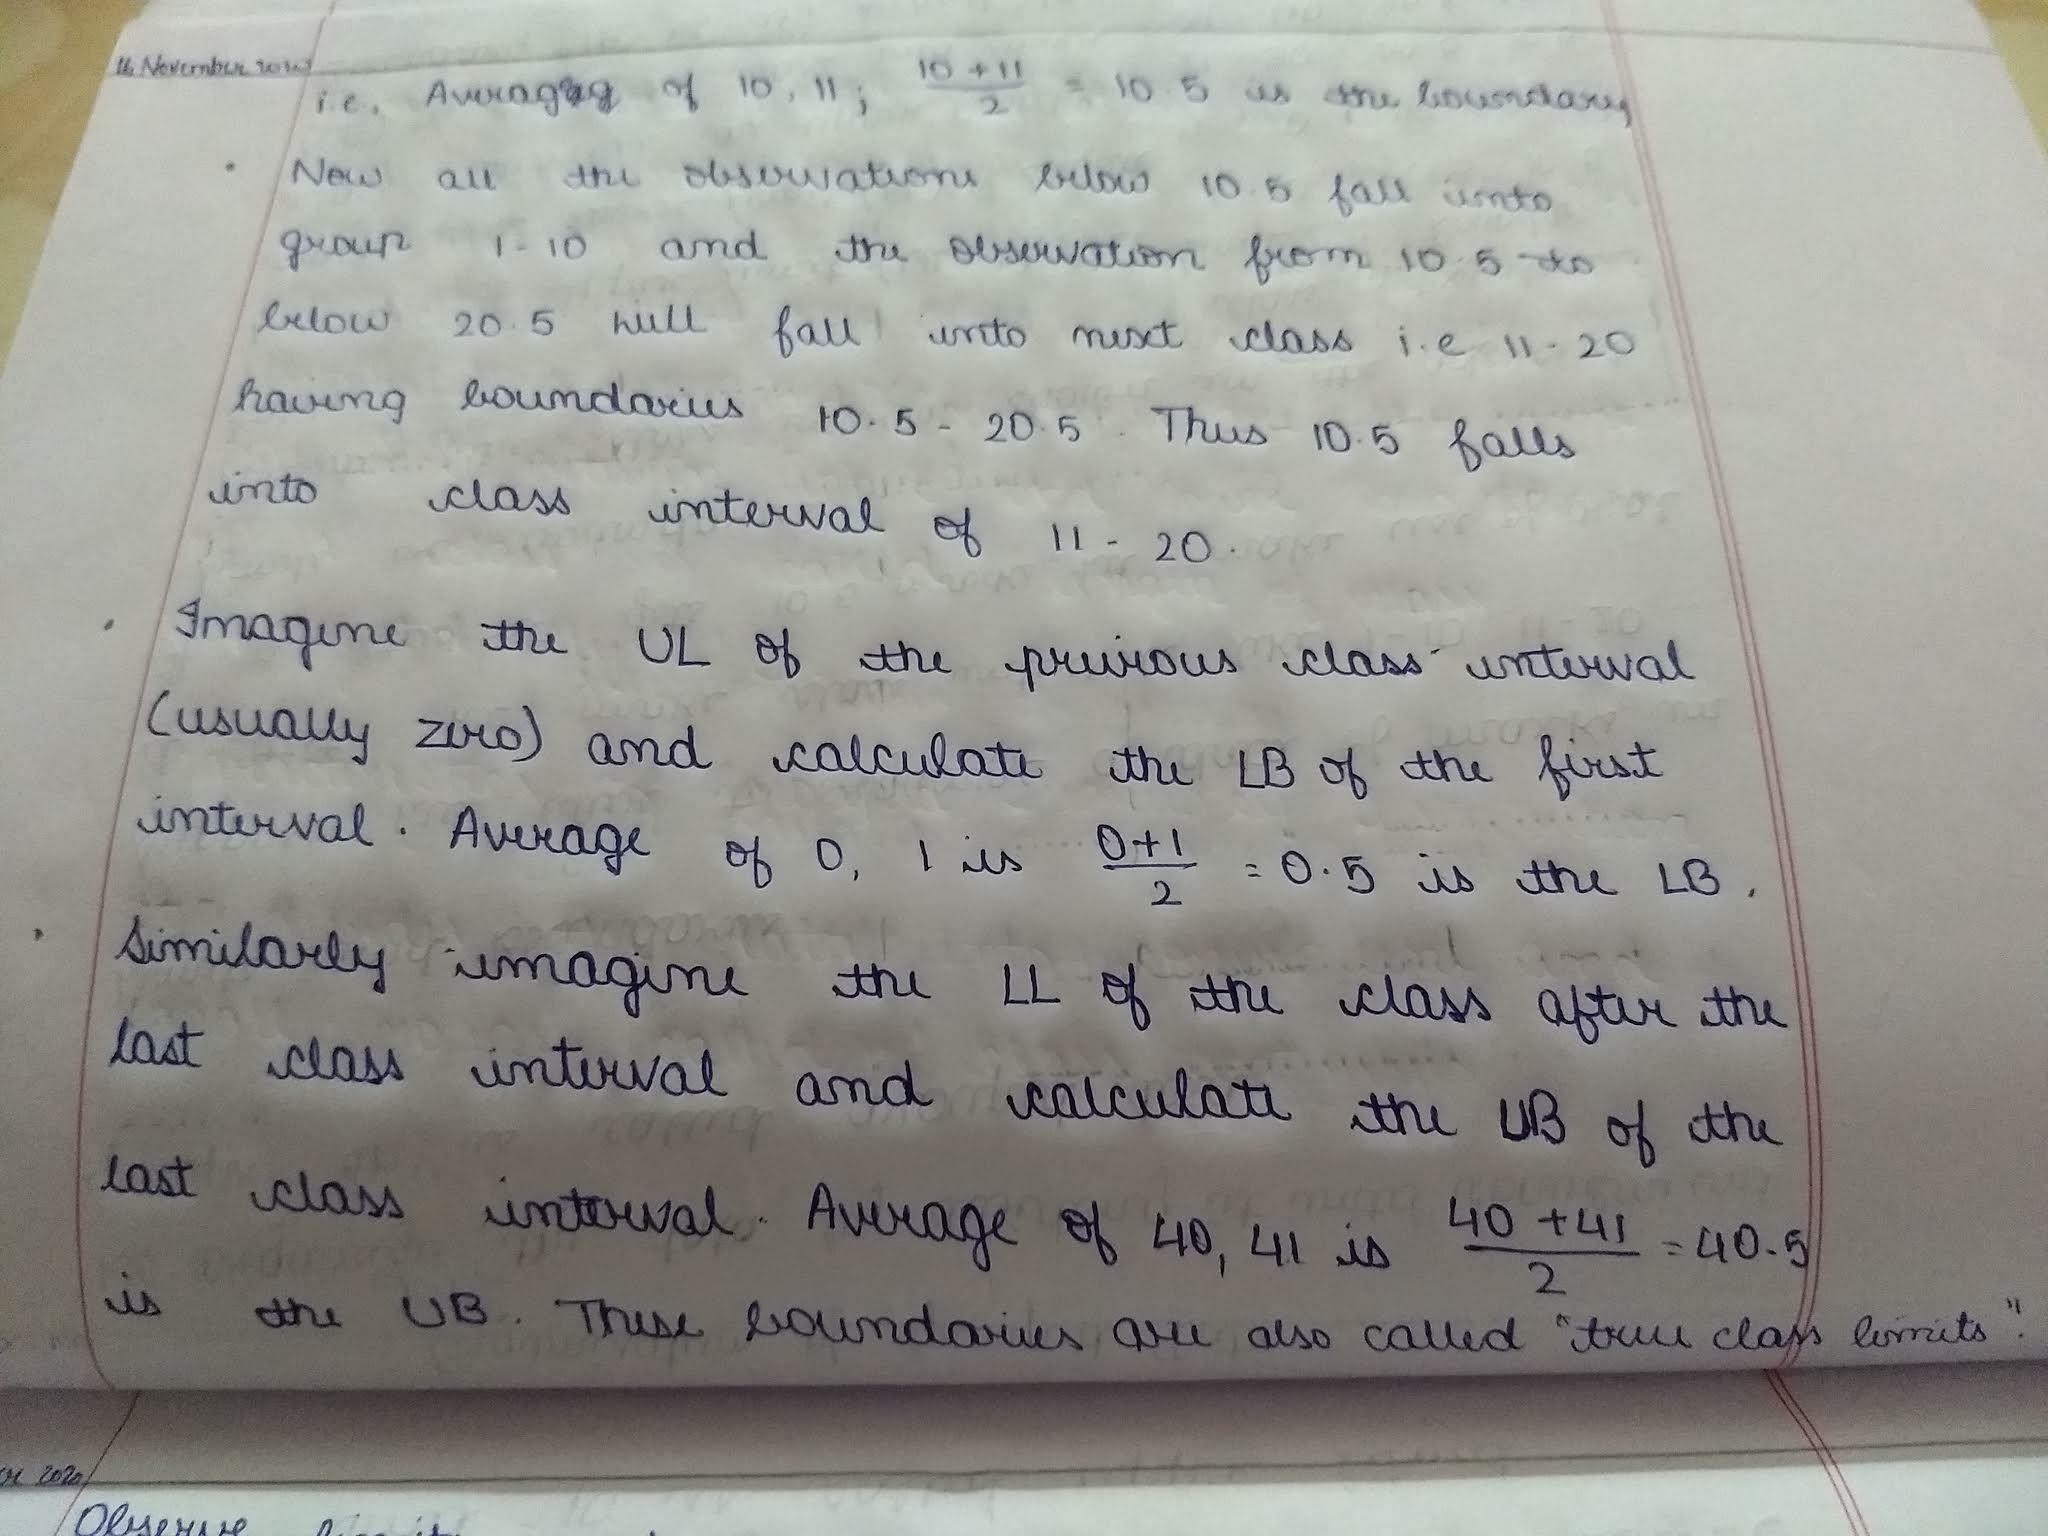 16 November 2020
i.e. Average of 10, 11; 10 + 11 / 2 = 10.5 is the boundary
• Now all the observations below 10.5 fall into
group 1-10 and the observation from 10.5 to
below 20.5 will fall into next class i.e 11-20
having boundaries 10.5 - 20.5. Thus 10.5 falls
into class interval of 11 - 20.
• Imagine the UL of the previous class interval
(usually zero) and calculate the LB of the first
interval. Average of 0, 1 is 0+1 / 2 = 0.5 is the LB.
• Similarly imagine the LL of the class after the
last class interval and calculate the UB of the
last class interval. Average of 40, 41 is 40 + 41 / 2 = 40.5
is the UB. These boundaries are also called "true class limits".
2020
Observe